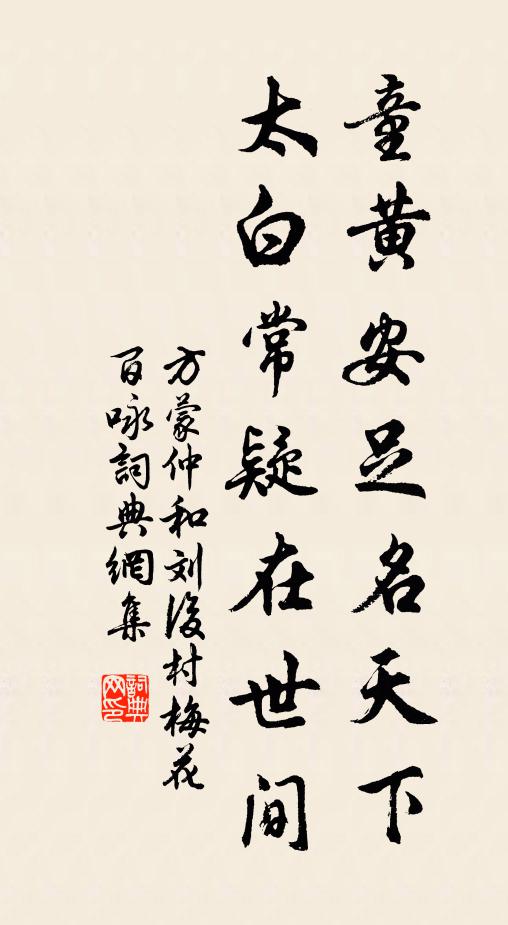 童黄安足名天下
太白常疑在世间
方蒙仲和刘後村梅花
百咏詞典網集
詞典
网印